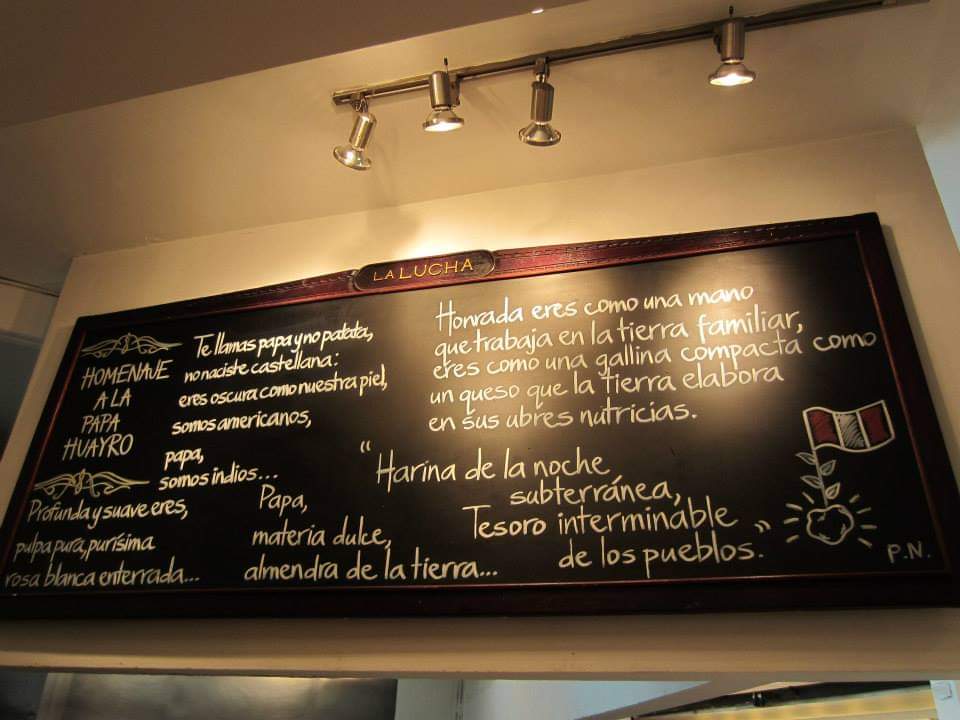 LA LUCHA
HOMENAJE
A LA
PAPA
HUAYRO
Te llamas papa y no patata,
no naciste castellana:
eres oscura como nuestra piel,
somos americanos,
papa,
somos indios...
Profunda y suave eres,
pulpa pura, purísima
rosa blanca enterrada...
Papa,
materia dulce,
almendra de la tierra...
Honrada eres como una mano
que trabaja en la tierra familiar,
eres como una gallina compacta como
un queso que la tierra elabora
en sus ubres nutricias.
"Harina de la noche
subterránea,
Tesoro interminable
de los pueblos."
P.N.